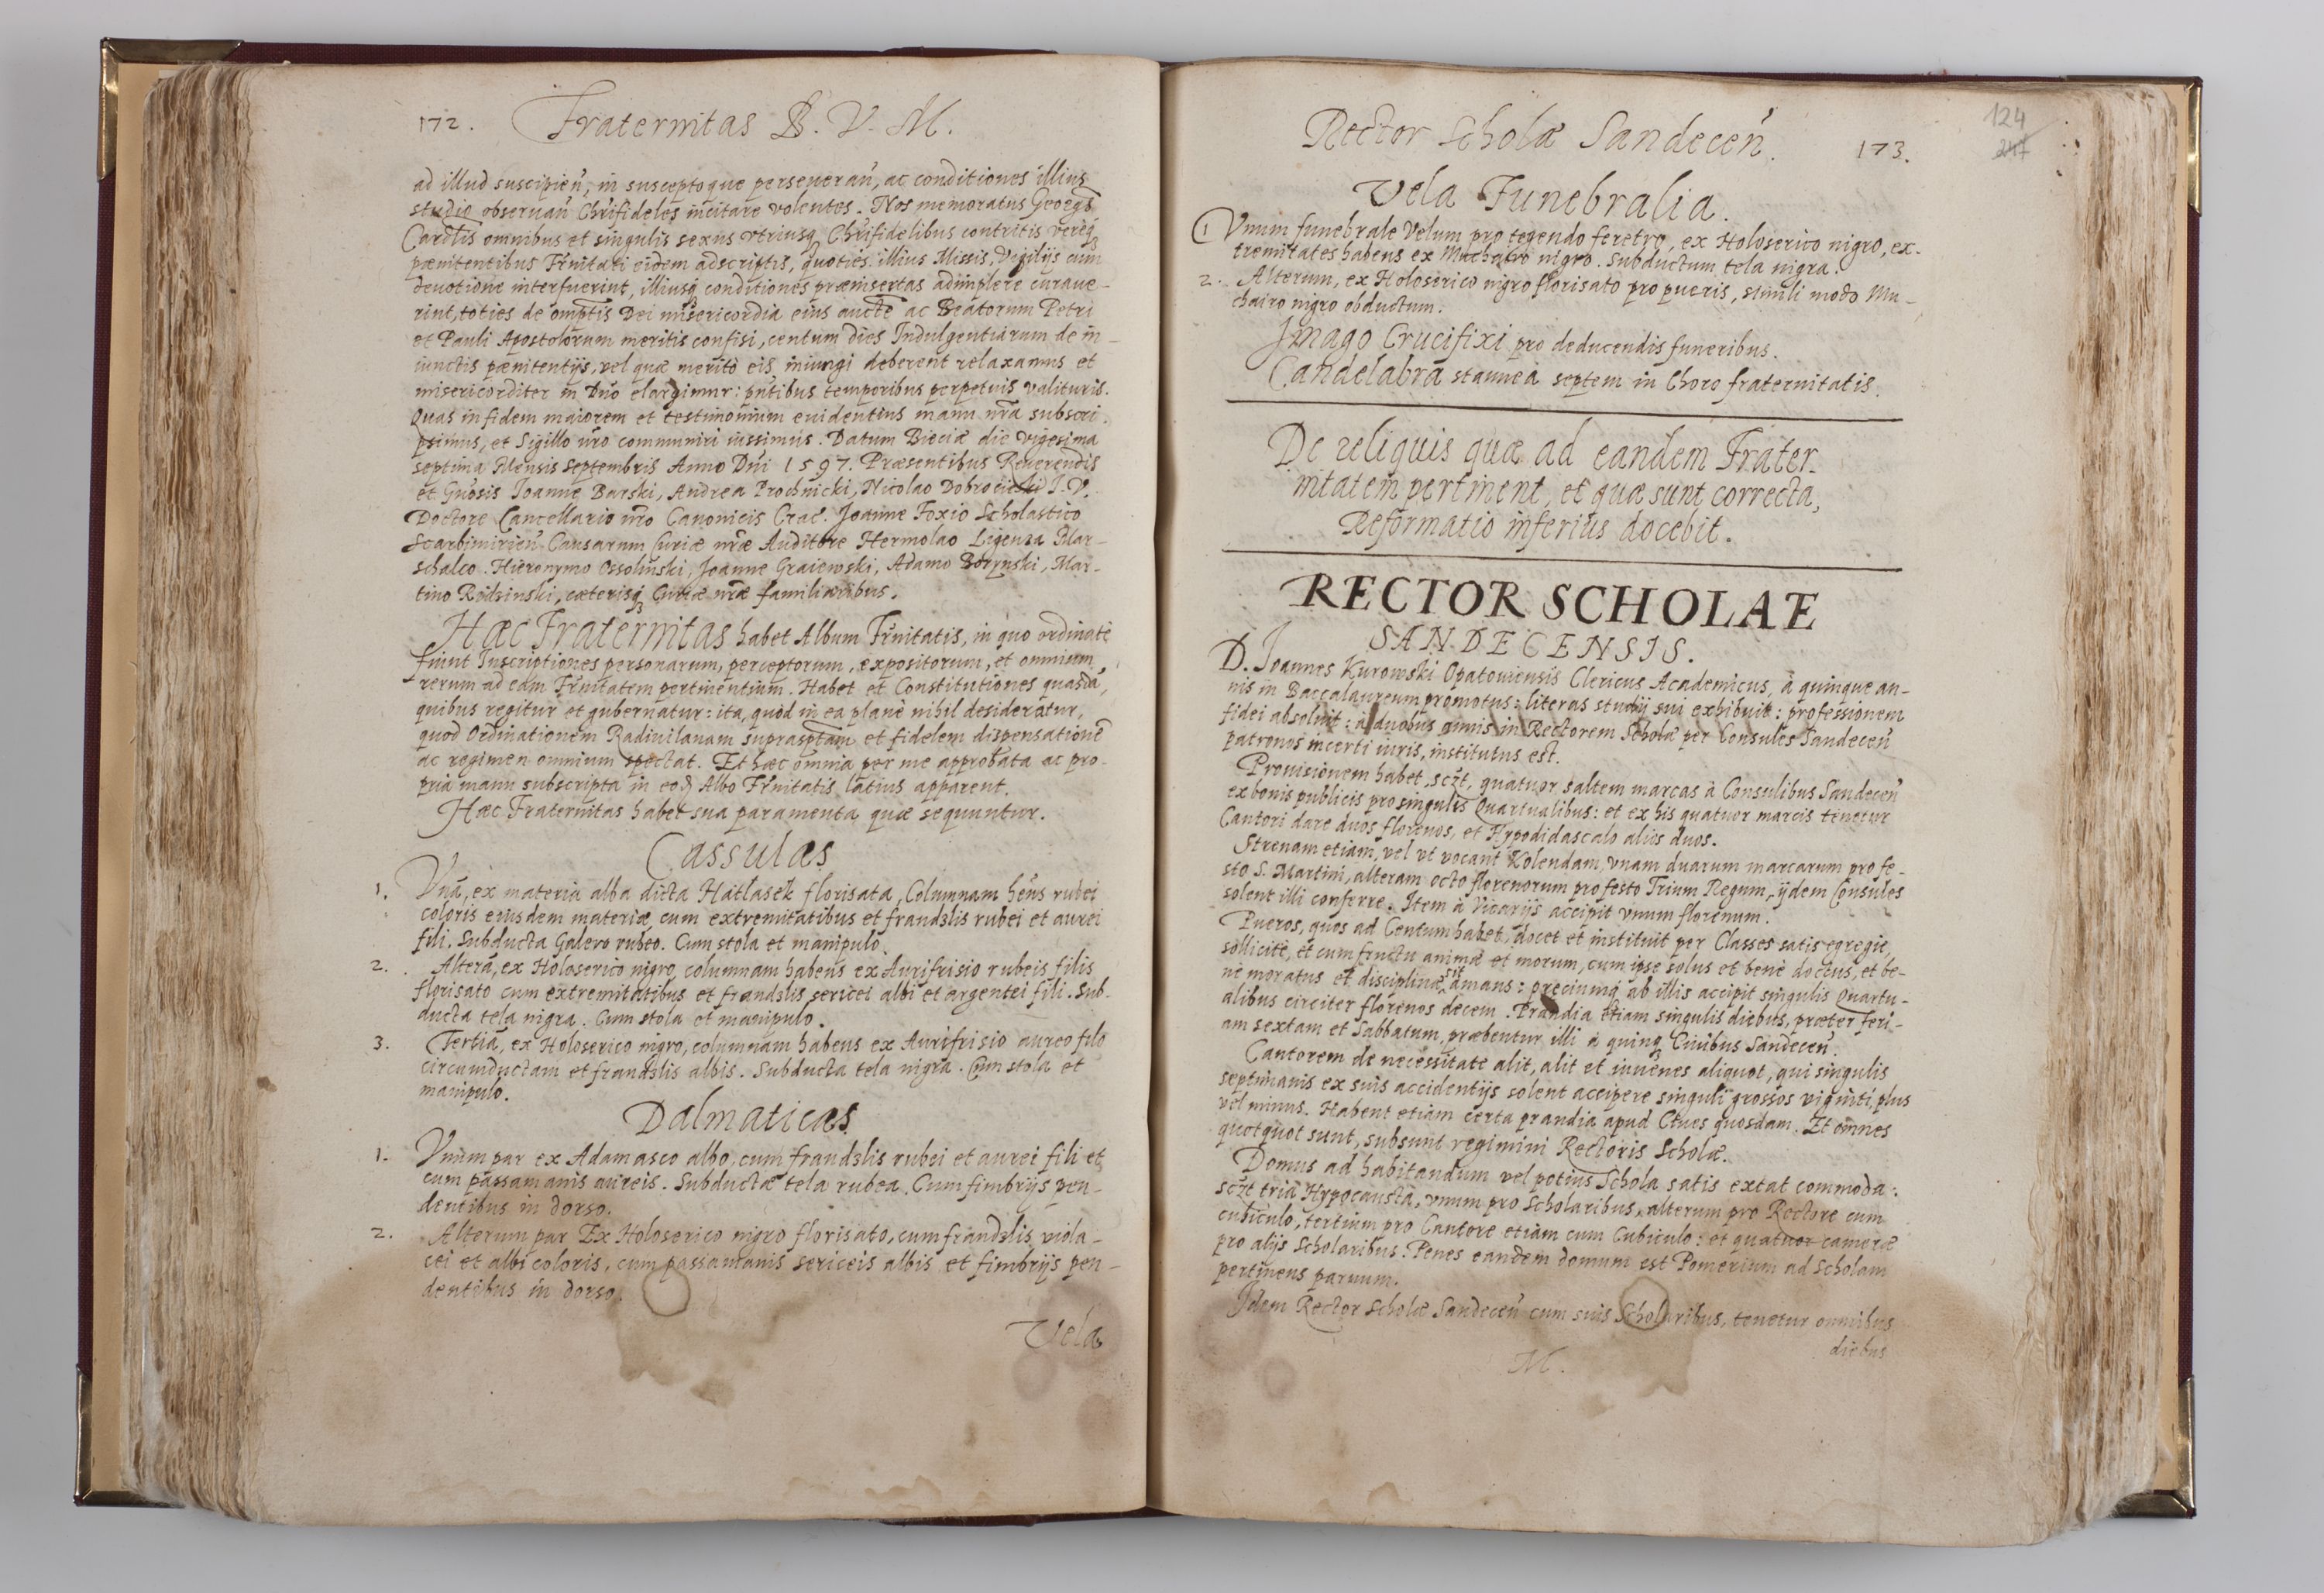 172. Fraternitas B. V. M.
ad illud suscipień, in susceptoque perseverań, ac conditiones illius
studio observań Chrifideles incitare volentes. Nos memoratus Georgs
Cardlis omnibus et singulis sexus utriusq Chrifidelibus contritis vereq
pænitentibus Frnitati eidem adscriptis, quoties illius Missis, Vigilijs cum
devotione interfuerint, illiusq conditiones præinsertas adimplere curave-
rint, toties de omptis Dei misericordia eius aucte ac Beatorum Petri
et Pauli Apostolorum meritis confisi, centum dies Indulgentiarum de in-
iunctis pænitentijs, vel quæ meritò eis iniungi deberent relaxamus et
misericorditer in Dno elargimur: pntibus temporibus perpetuis valituris.
Quas in fidem maiorem et testimonium evidentius manu nra subscri-
psimus, et Sigillo nro communiri iussimus. Datum Bieciæ die vigesima
septima Mensis Septembris Anno Dni 1597. Præsentibus Reverendis
et Gnosis Joanne Barski, Andrea Prochnicki, Nicolao Dobrocieski J. V.
Doctore Cancellario nro Canonicis Crac. Joanne Foxio Scholastico
Scarbimirień Causarum Curiæ nræ Auditore Hermolao Ligenza Mar-
schalco. Hieronymo Ossolinski, Joanne Graiewski, Adamo Borzynski, Mar-
tino Rudzinski, cæterisq Curiæ nræ familiaribus.
Hæc Fraternitas habet Album Frnitatis, in quo ordinatè
fiunt Inscriptiones personarum, perceptorum, expositorum, et omnium
rerum ad eam Frnitatem pertinentium. Habet et Constitutiones quasdā,
quibus regitur et gubernatur: ita, quòd in ea planè nihil desideratur,
quod Ordinationem Radivilanam suprasptam et fidelem dispensationē
ac regimen omnium spectat. Et hæc omnia per me approbata ac pro-
pria manu subscripta in eod Albo Frnitatis latius apparent.
Hæc Fraternitas habet sua paramenta quæ sequuntur.
Cassulas
1. Vnā, ex materia alba dicta Hatłasek florisata, Columnam hens rubei
coloris eiusdem materiæ, cum extremitatibus et frandzlis rubei et aurei
fili. Subducta Galero rubeo. Cum stola et manipulo.
2. Alterā, ex Holoserico nigro, columnam habens ex Aurifrisio rubeis filis
florisato cum extremitatibus et frandzlis sericei albi et argentei fili. Sub-
ducta tela nigra. Cum stola et manipulo.
3. Tertiā, ex Holoserico nigro, columnam habens ex Aurifrisio aureo filo
circumductam et frandzlis albis. Subducta tela nigra. Cum stola et
manipulo.
Dalmaticas
1. Vnum par ex Adamasco albo, cum frandzlis rubei et aurei fili et
cum passamanis aureis. Subductæ tela rubea. Cum fimbrijs pen-
dentibus in dorso.
2. Alterum par Ex Holoserico nigro florisato, cum frandzlis viola-
cei et albi coloris, cum passamanis sericeis albis et fimbrijs pen-
dentibus in dorso.
Vela
Rector Scholæ Sandeceń. 173.
124
247
Vela Funebralia.
1 Vnum funebrale Velum pro tegendo feretro, ex Holoserico nigro, ex-
tremitates habens ex Muchairo nigro. Subductum tela nigra.
2. Alterum, ex Holoserico nigro florisato pro pueris, simili modo Mu-
chairo nigro obductum.
Imago Crucifixi pro deducendis funeribus.
Candelabra stannea septem in Choro fraternitatis.
De reliquis quæ ad eandem Frater-
nitatem pertinent, et quæ sunt correcta,
Reformatio inferius docebit.
RECTOR SCHOLAE
SANDECENSIS.
D. Joannes Kurowski Opatoviensis Clericus Academicus, à quinque an-
nis in Baccalaureum promotus: literas studij sui exhibuit: professionem
fidei absolvit: à duobus annis in Rectorem Scholæ per Consules Sandeceń
patronos incerti iuris, institutus est.
Provisionem habet, sczt, quatuor saltem marcas à Consulibus Sandeceń
ex bonis publicis pro singulis Quartualibus: et ex his quatuor marcis tenetur
Cantori dare duos florenos, et Hypodidascalo alios duos.
Strenam etiam, vel ut vocant Kolendam, unam duarum marcarum pro fe-
sto S. Martini, alteram octo florenorum pro festo Trium Regum, ijdem Consules
solent illi conferre. Item à Vicarijs accipit vnum florenum.
Pueros, quos ad Centum habet, docet et instituit per Classes satis egregiè,
sollicitè, et cum fructu animæ et morum, cum ipse solus et benè doctus, et be-
nè moratus et disciplinæ sit amans: preciumq ab illis accipit singulis Quartu-
alibus circiter florenos decem. Prandia etiam singulis diebus, præter Feri-
am sextam et Sabbatum, præbentur illi à quinq Civibus Sandeceń.
Cantorem de necessitate alit, alit et iuvenes aliquot, qui singulis
septimanis ex suis accidentijs solent accipere singuli grossos viginti, plus
vel minus. Habent etiam certa prandia apud Cives quosdam. Et omnes
quotquot sunt, subsunt regimini Rectoris Scholæ.
Domus ad habitandum vel potius Schola satis extat commoda:
sczt tria Hypocausta, vnum pro Scholaribus, alterum pro Rectore cum
cubiculo, tertium pro Cantore etiam cum Cubiculo: et quatuor cameræ
pro alijs Scholaribus. Penes eandem domum est Pomerium ad Scholam
pertinens parvum.
Idem Rector Scholæ Sandeceń cum suis Scholaribus, tenetur omnibus
diebus
M.